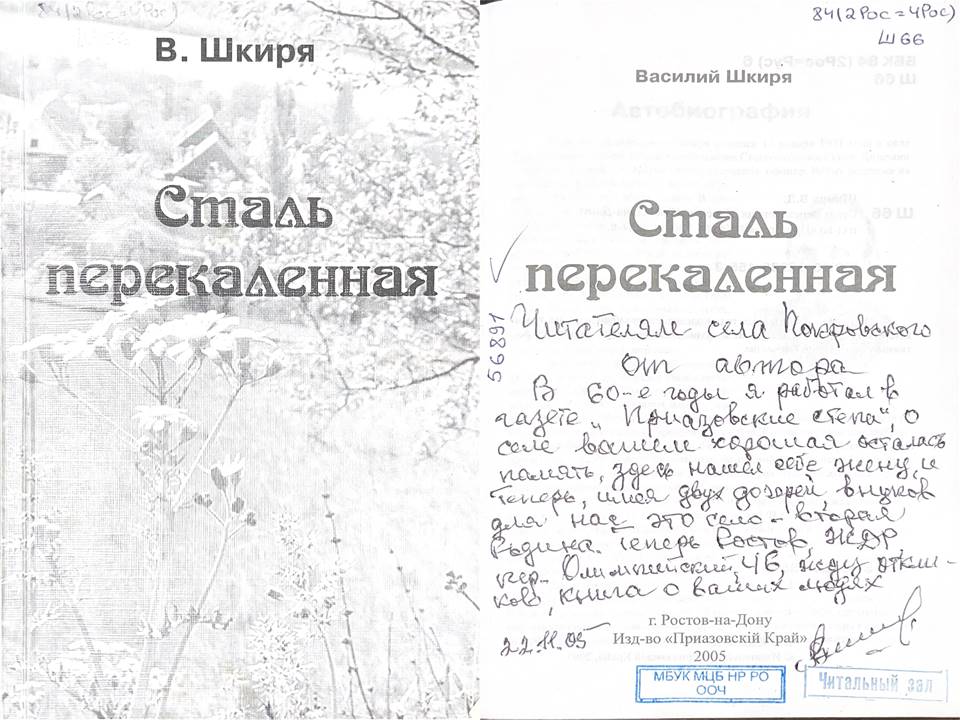 84(2Рос=4Рос)
Ш66
В. Шкиря
Сталь
перекаленная
84(2Рос=4Рос)
Ш66
Василий Шкиря
Сталь
перекаленная
56891
Читателям села Покровского
от автора
В 60-е годы я работал в
газете „Приазовские степи", о
селе вашем хорошая осталась
память, здесь нашел себе жену, и
теперь, имея двух дочерей, внуков
для нас это село – вторая
Родина. Теперь Ростов, ЖДР,
пер. Олимпийский, 46, жду откли-
ков, книга о ваших людях
22.11.05
г. Ростов-на-Дону
Изд-во «Приазовскій Край»
2005
МБУК МЦБ НР РО
ООЧ
Читальный зал